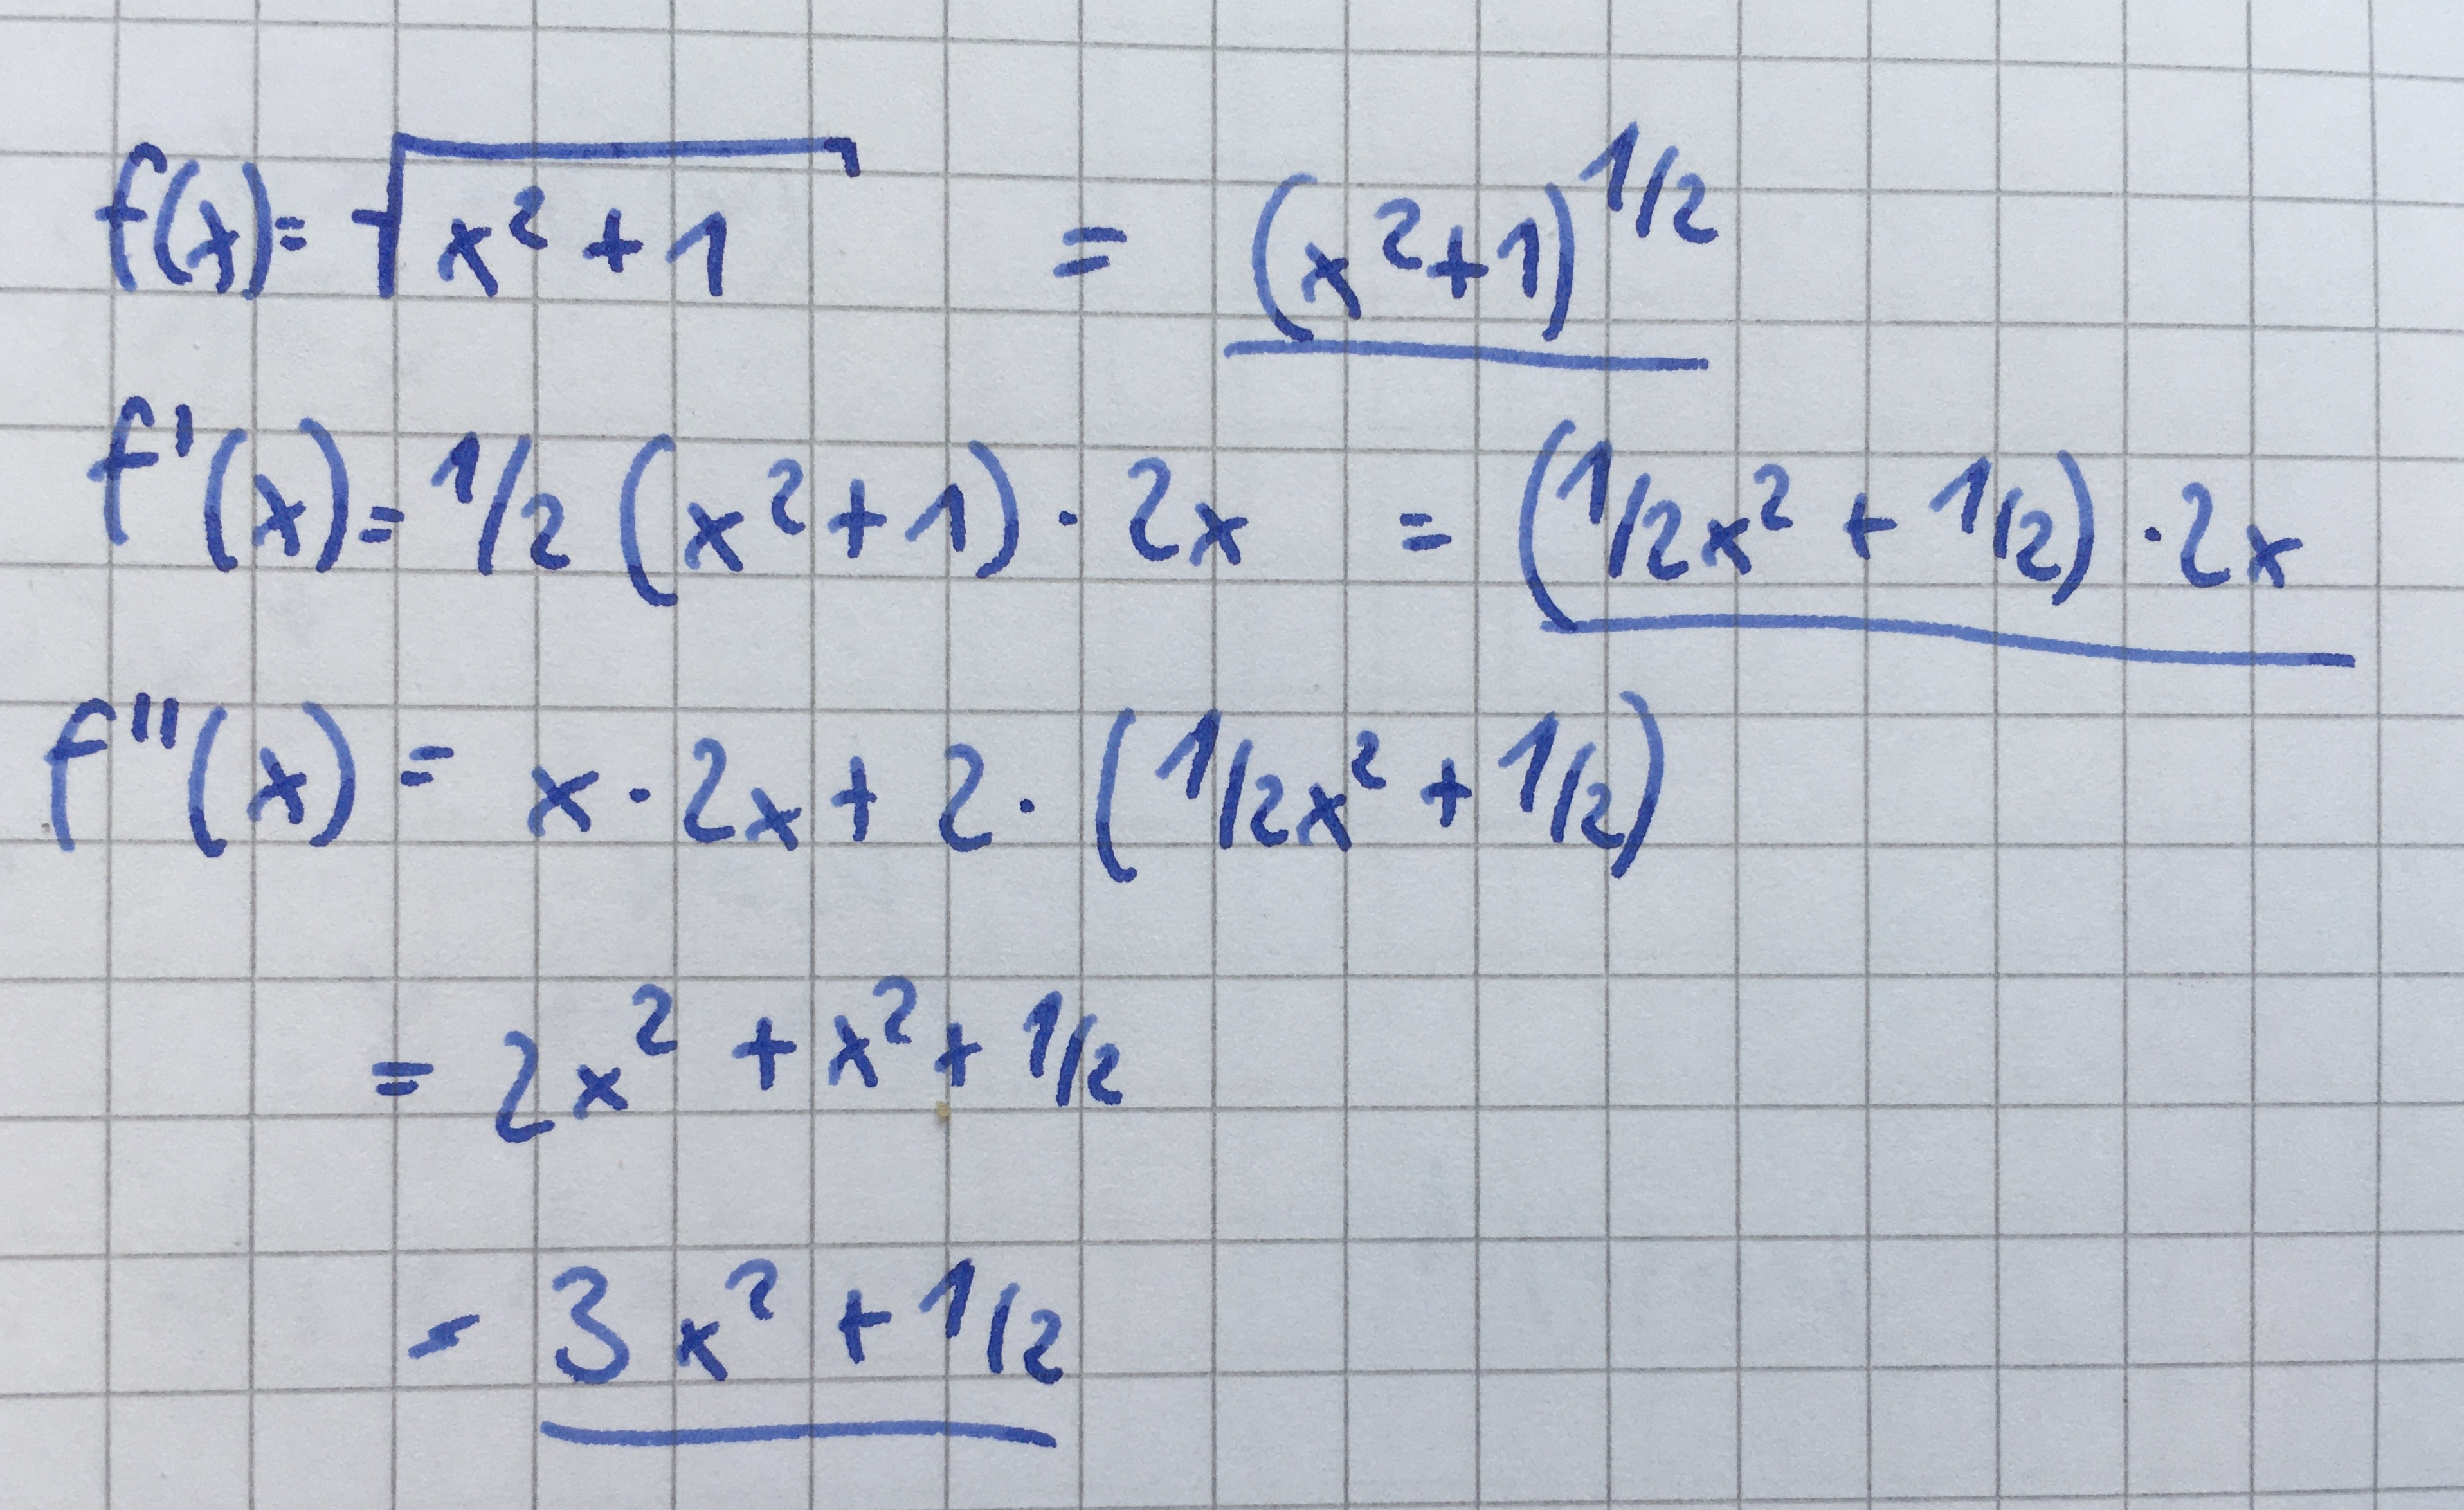 f(x)= √(x²+1) = (x²+1)^1/2
f'(x)= 1/2 (x²+1) · 2x = (1/2x² + 1/2) · 2x
f''(x) = x · 2x + 2 · (1/2x² + 1/2)
= 2x² + x² + 1/2
= 3x² + 1/2